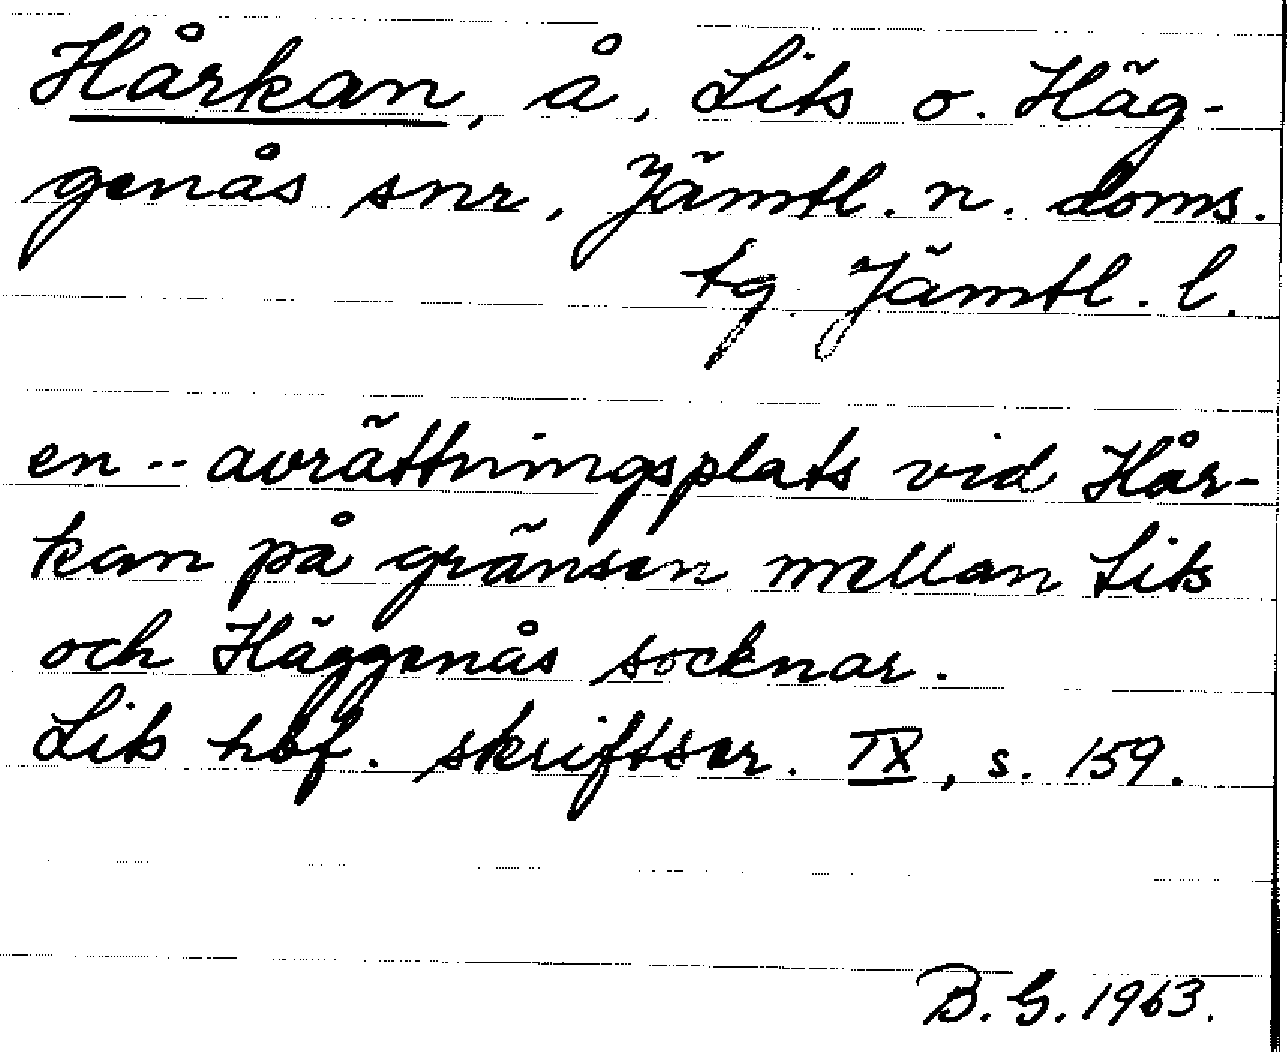 Hårkan, å, Lits o. Häg-
genås snr, Jämtl. n. doms.
tg. Jämtl. l.
en -- avrättningsplats vid Hår-
kan på gränsen mellan Lits
och Häggenås socknar.
Lits hbf. skriftser. IX, s. 159.
B. G. 1963.